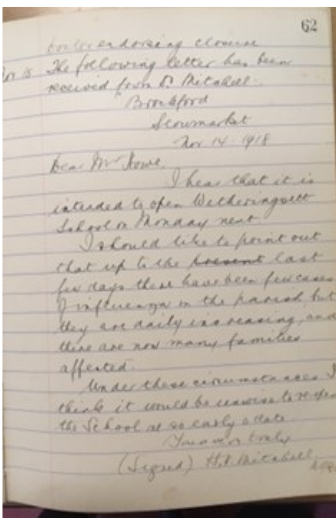 62
endorsing closure
Nov 15 The following letter has been
received from Dr Mitchell.
Brockford
Stowmarket
Nov 14. 1918
Dear Mr Rowe.
I hear that it is
intended to open Wetheringsett
School on Monday next.
I should like to point out
that up to the present last
few days there have been few cases
of influenza in the parish, but
they are daily increasing, and
there are now many families
affected.
Under these circumstances I
think it would be unwise to re-open
the School at so early a date
Yours very truly
(Signed) H. Mitchell